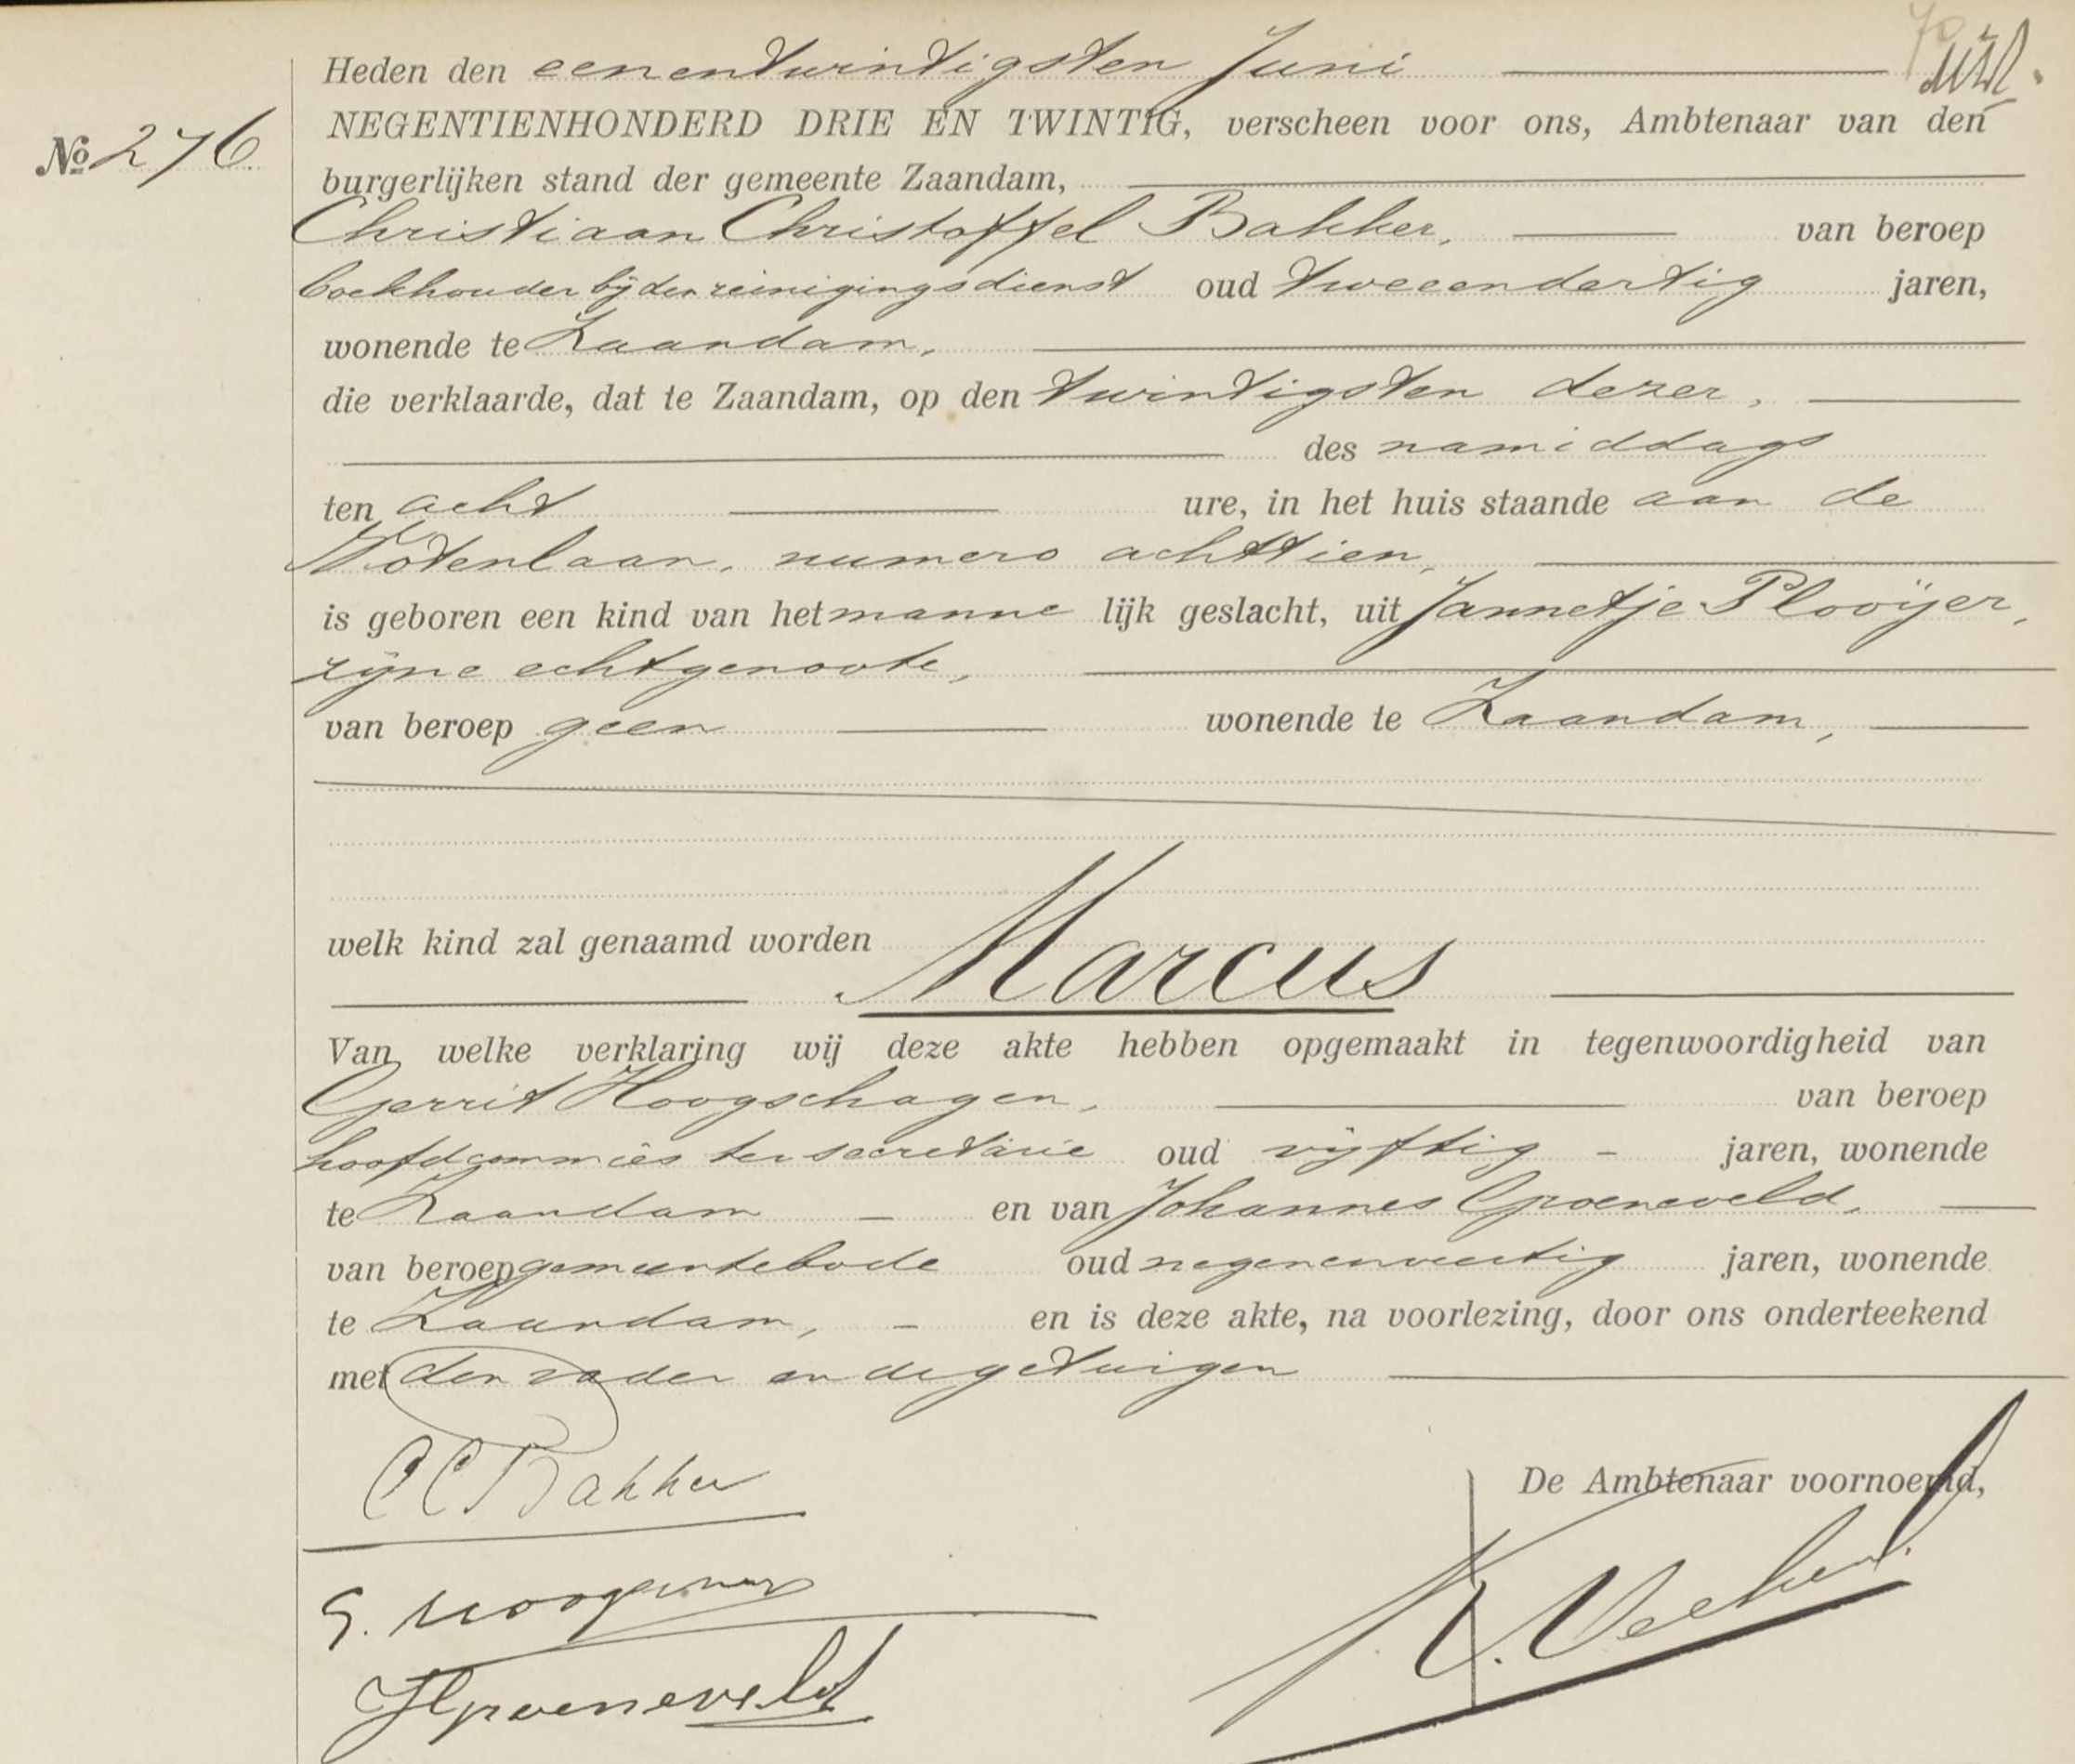 Heden den eenentwintigsten Juni
No 276
NEGENTIENHONDERD DRIE EN TWINTIG, verscheen voor ons, Ambtenaar van den
burgerlijken stand der gemeente Zaandam,
Christiaan Christoffel Bakker, van beroep
boekhouder bij den reinigingsdienst oud tweeendertig jaren,
wonende te Zaandam,
die verklaarde, dat te Zaandam, op den twintigsten dezer,
des namiddags
ten acht ure, in het huis staande aan de
Notenlaan, numero achttien,
is geboren een kind van het mannelijk geslacht, uit Jannetje Plooijer,
zijne echtgenoote,
van beroep geen wonende te Zaandam,
welk kind zal genaamd worden
Marcus
Van welke verklaring wij deze akte hebben opgemaakt in tegenwoordigheid van
Gerrit Hoogschagen, van beroep
hoofdcommies ter secretarie oud vijftig jaren, wonende
te Zaandam en van Johannes Groeneveld,
van beroep gemeentebode oud negenenveertig jaren, wonende
te Zaandam, en is deze akte, na voorlezing, door ons onderteekend
met den vader en de getuigen
CC Bakker
De Ambtenaar voornoemd,
G. Hoogschagen
JGroeneveld